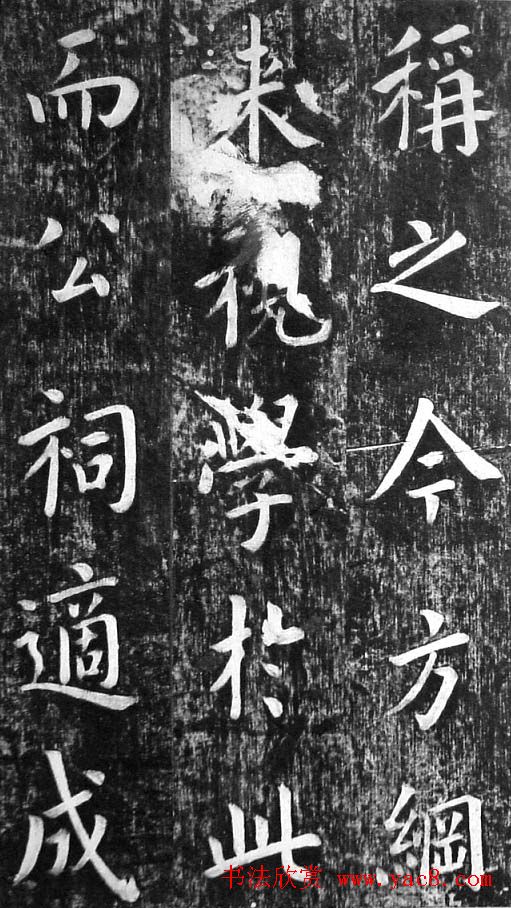 稱之今方綱
来視學於此
而公祠適成
书法欣赏 www.yac8.com